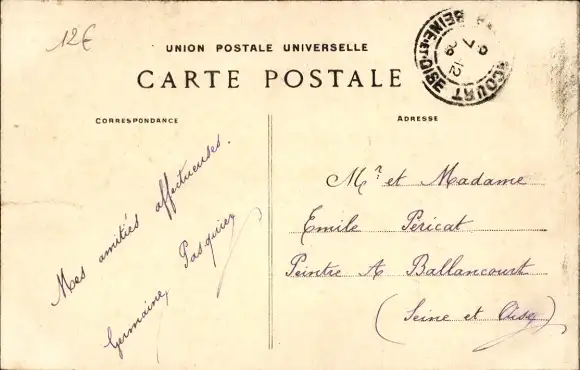 12€
UNION POSTALE UNIVERSELLE
CARTE POSTALE
CORRESPONDANCE
Mes amitiés affectueuses.
Germaine Pasquier
ADRESSE
Mr et Madame
Emile Péricat
Peintre A Ballancourt
(Seine et Oise)
COURT
SEINE-ET-OISE
7
12